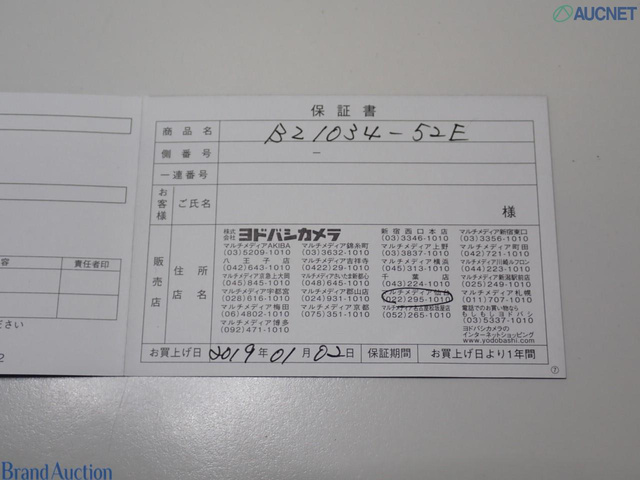 AUCNET
保証書
商品名 B21034-52E
側番号 －
一連番号
お客様 ご氏名 様
販売店 住所 店名
株式会社 ヨドバシカメラ
マルチメディアAKIBA
(03)5209-1010
八王子店
(042)643-1010
マルチメディア京急上大岡
(045)845-1010
マルチメディア宇都宮
(028)616-1010
マルチメディア梅田
(06)4802-1010
マルチメディア博多
(092)471-1010
マルチメディア錦糸町
(03)3632-1010
マルチメディア吉祥寺
(0422)29-1010
マルチメディアさいたま新都心
(048)645-1010
マルチメディア郡山店
(024)931-1010
マルチメディア京都
(075)351-1010
新宿西口本店
(03)3346-1010
マルチメディア上野
(03)3837-1010
マルチメディア横浜
(045)313-1010
千葉店
(043)224-1010
(022)295-1010
マルチメディア名古屋松坂屋店
(052)265-1010
マルチメディア新宿東口
(03)3356-1010
マルチメディア町田
(042)721-1010
マルチメディア川崎ルフロン
(044)223-1010
マルチメディア新潟駅前店
(025)249-1010
マルチメディア札幌
(011)707-1010
電話でのお買い物なら
もしもしヨドバシ
(03)5337-1010
ヨドバシカメラの
インターネットショッピング
www.yodobashi.com
お買上げ日 2019年01月02日 保証期間 お買上げ日より1年間
⑦
容 責任者印
ださい
2
Brand Auction